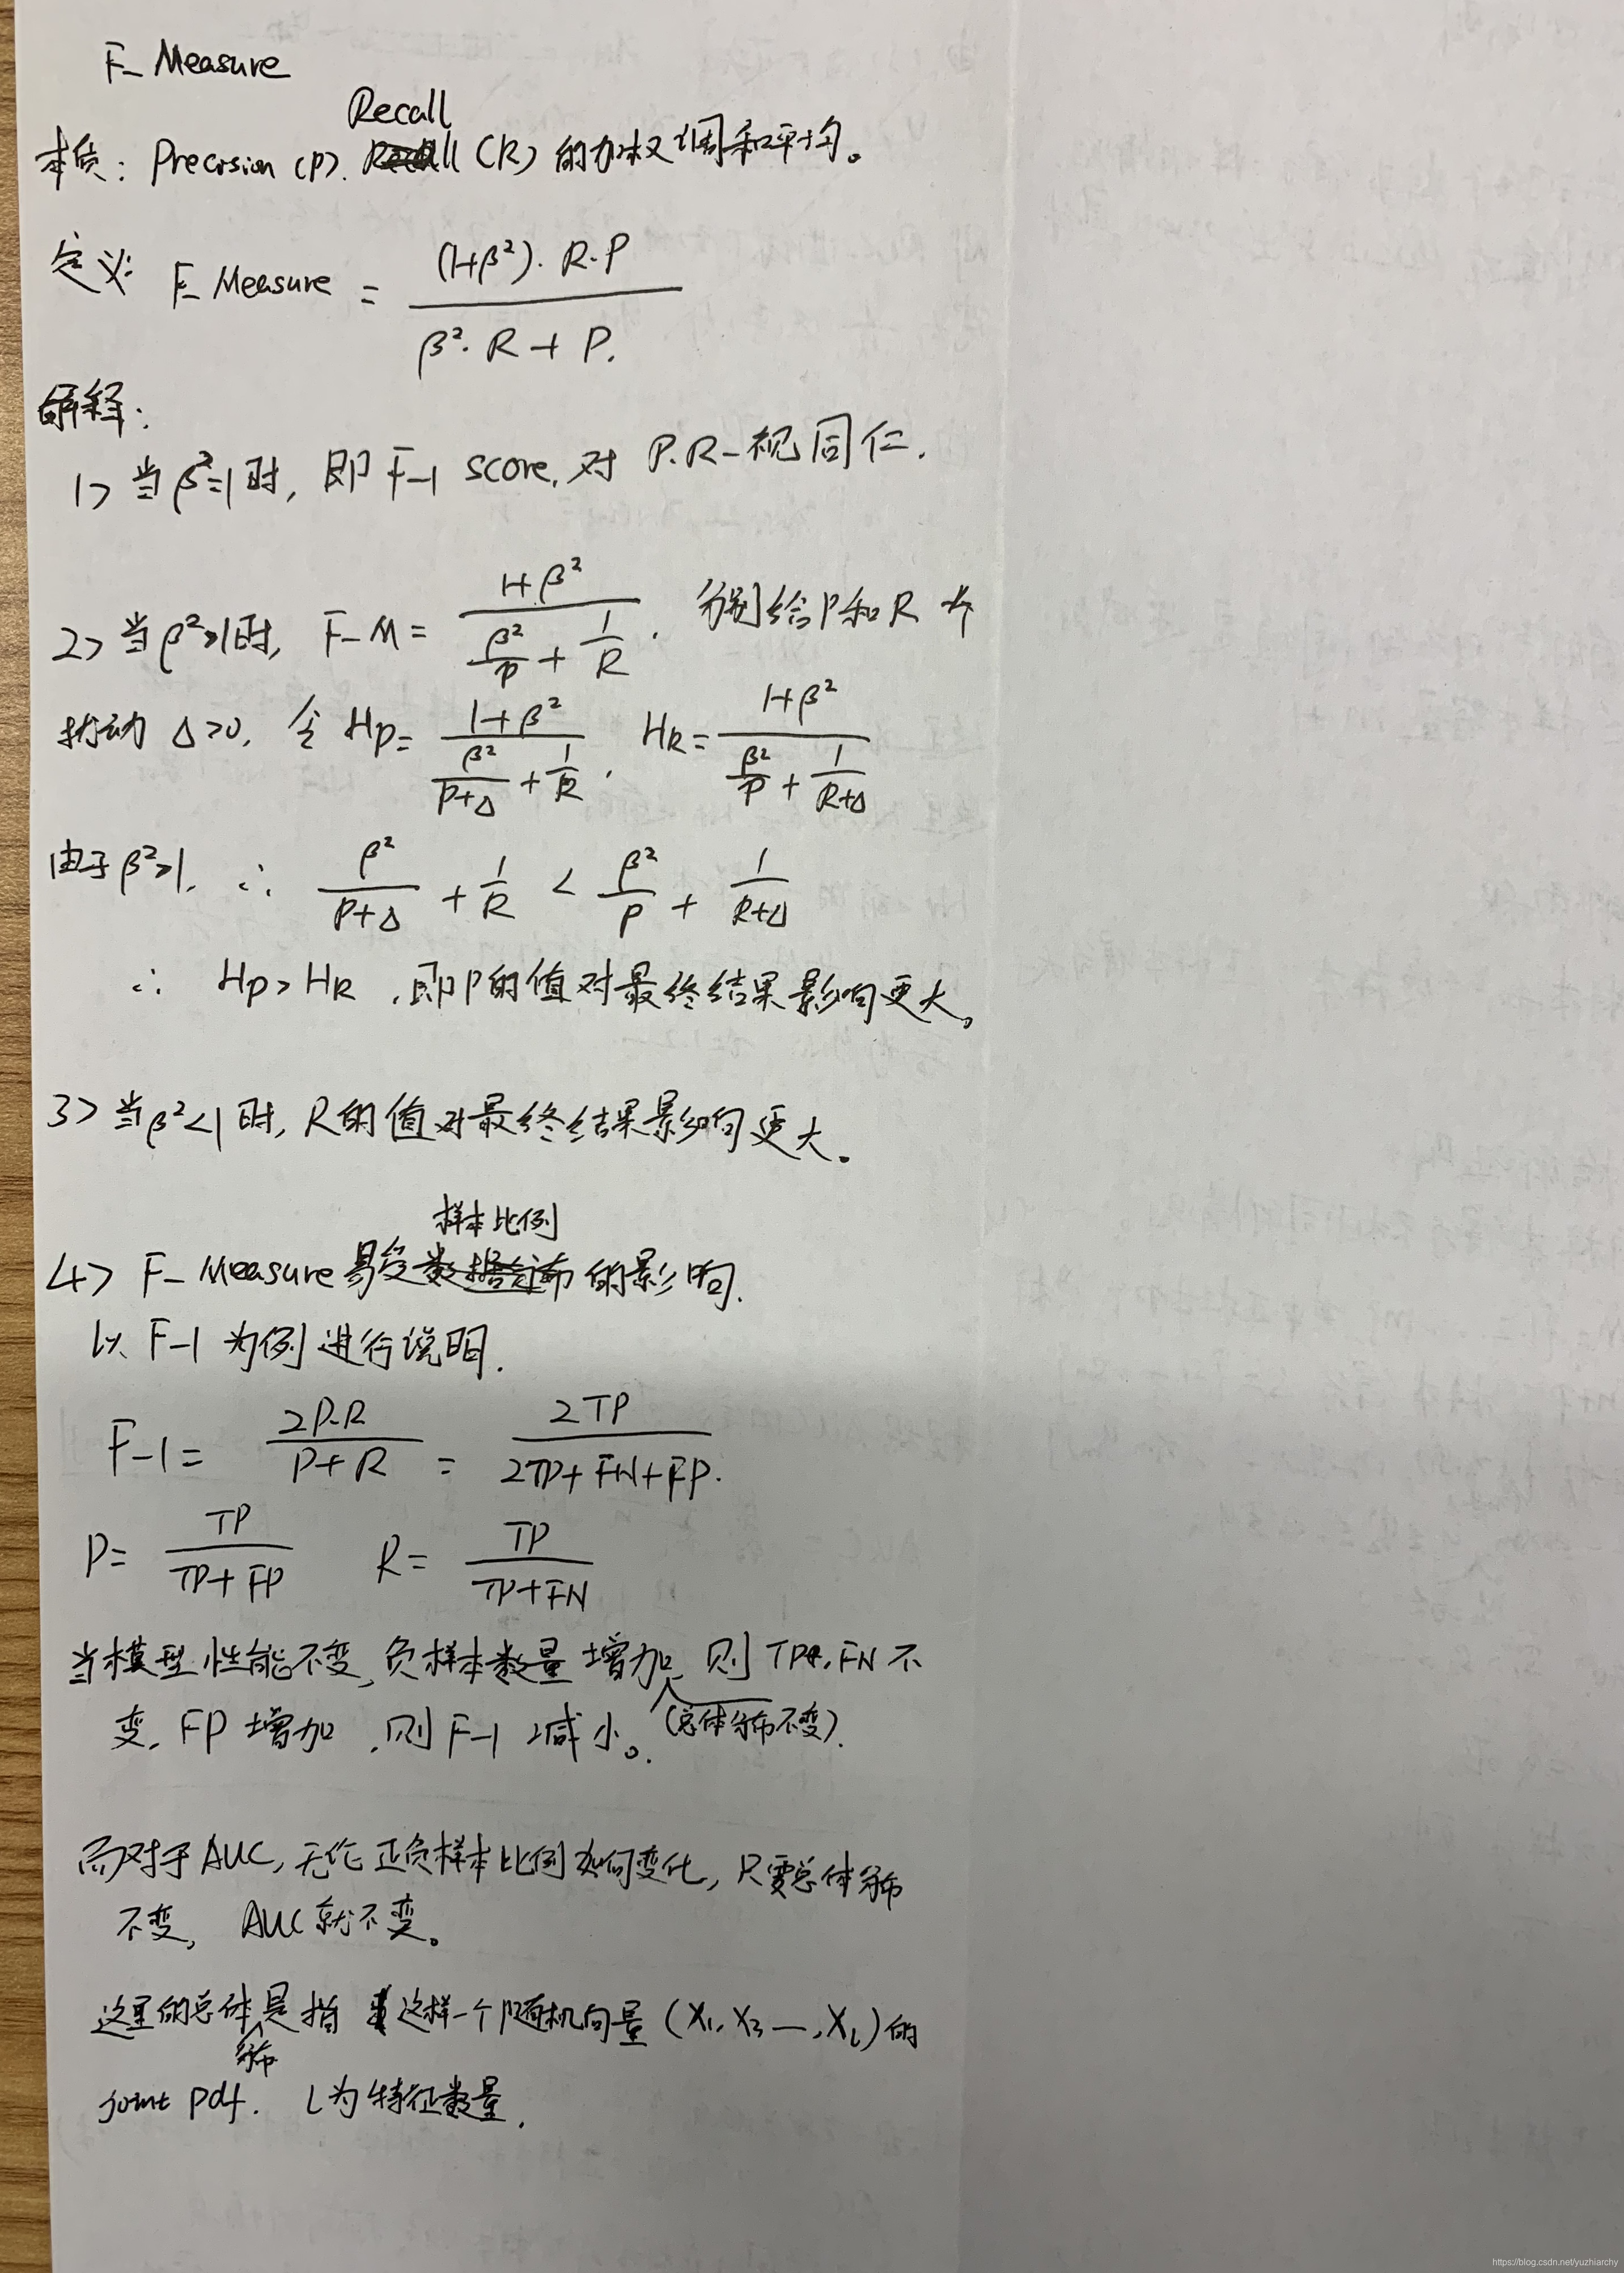 F_Measure
Recall
本质：Precision (P). (R) 的加权调和平均。
定义: F_Measure = \frac{(1+β²)·R·P}{β²·R+P.}
解释：
1> 当β²=1时, 即F-1 score, 对 P.R一视同仁.
2> 当β²>1时, F-M = \frac{1+β²}{\frac{β²}{P}+\frac{1}{R}}. 分别给P和R 个
扰动 Δ>0, 令 H_P= \frac{1+β²}{\frac{β²}{P+Δ}+\frac{1}{R}}, H_R= \frac{1+β²}{\frac{β²}{P}+\frac{1}{R+Δ}}
由于 β²>1, ∴ \frac{β²}{P+Δ}+\frac{1}{R} < \frac{β²}{P}+\frac{1}{R+Δ}
∴ H_P>H_R, 即P的值对最终结果影响更大。
3> 当β²<1时, R的值对最终结果影响更大。
样本比例
4> F_Measure易受数据分布的影响.
以 F-1 为例进行说明.
F-1 = \frac{2P·R}{P+R} = \frac{2TP}{2TP+FN+FP}.
P= \frac{TP}{TP+FP} R= \frac{TP}{TP+FN}
当模型性能不变,负样本数量增加, 则 TP, FN 不
变, FP 增加, 则 F-1 减小。 (总体分布不变).
而对于AUC, 无论正负样本比例如何变化, 只要总体分布
不变, AUC就不变。
这里的总体是指 这样一个随机向量 (X₁, X₃ —, X_L) 的
分布
joint pdf. L为特征数量.
https://blog.csdn.net/yuzhiarchy